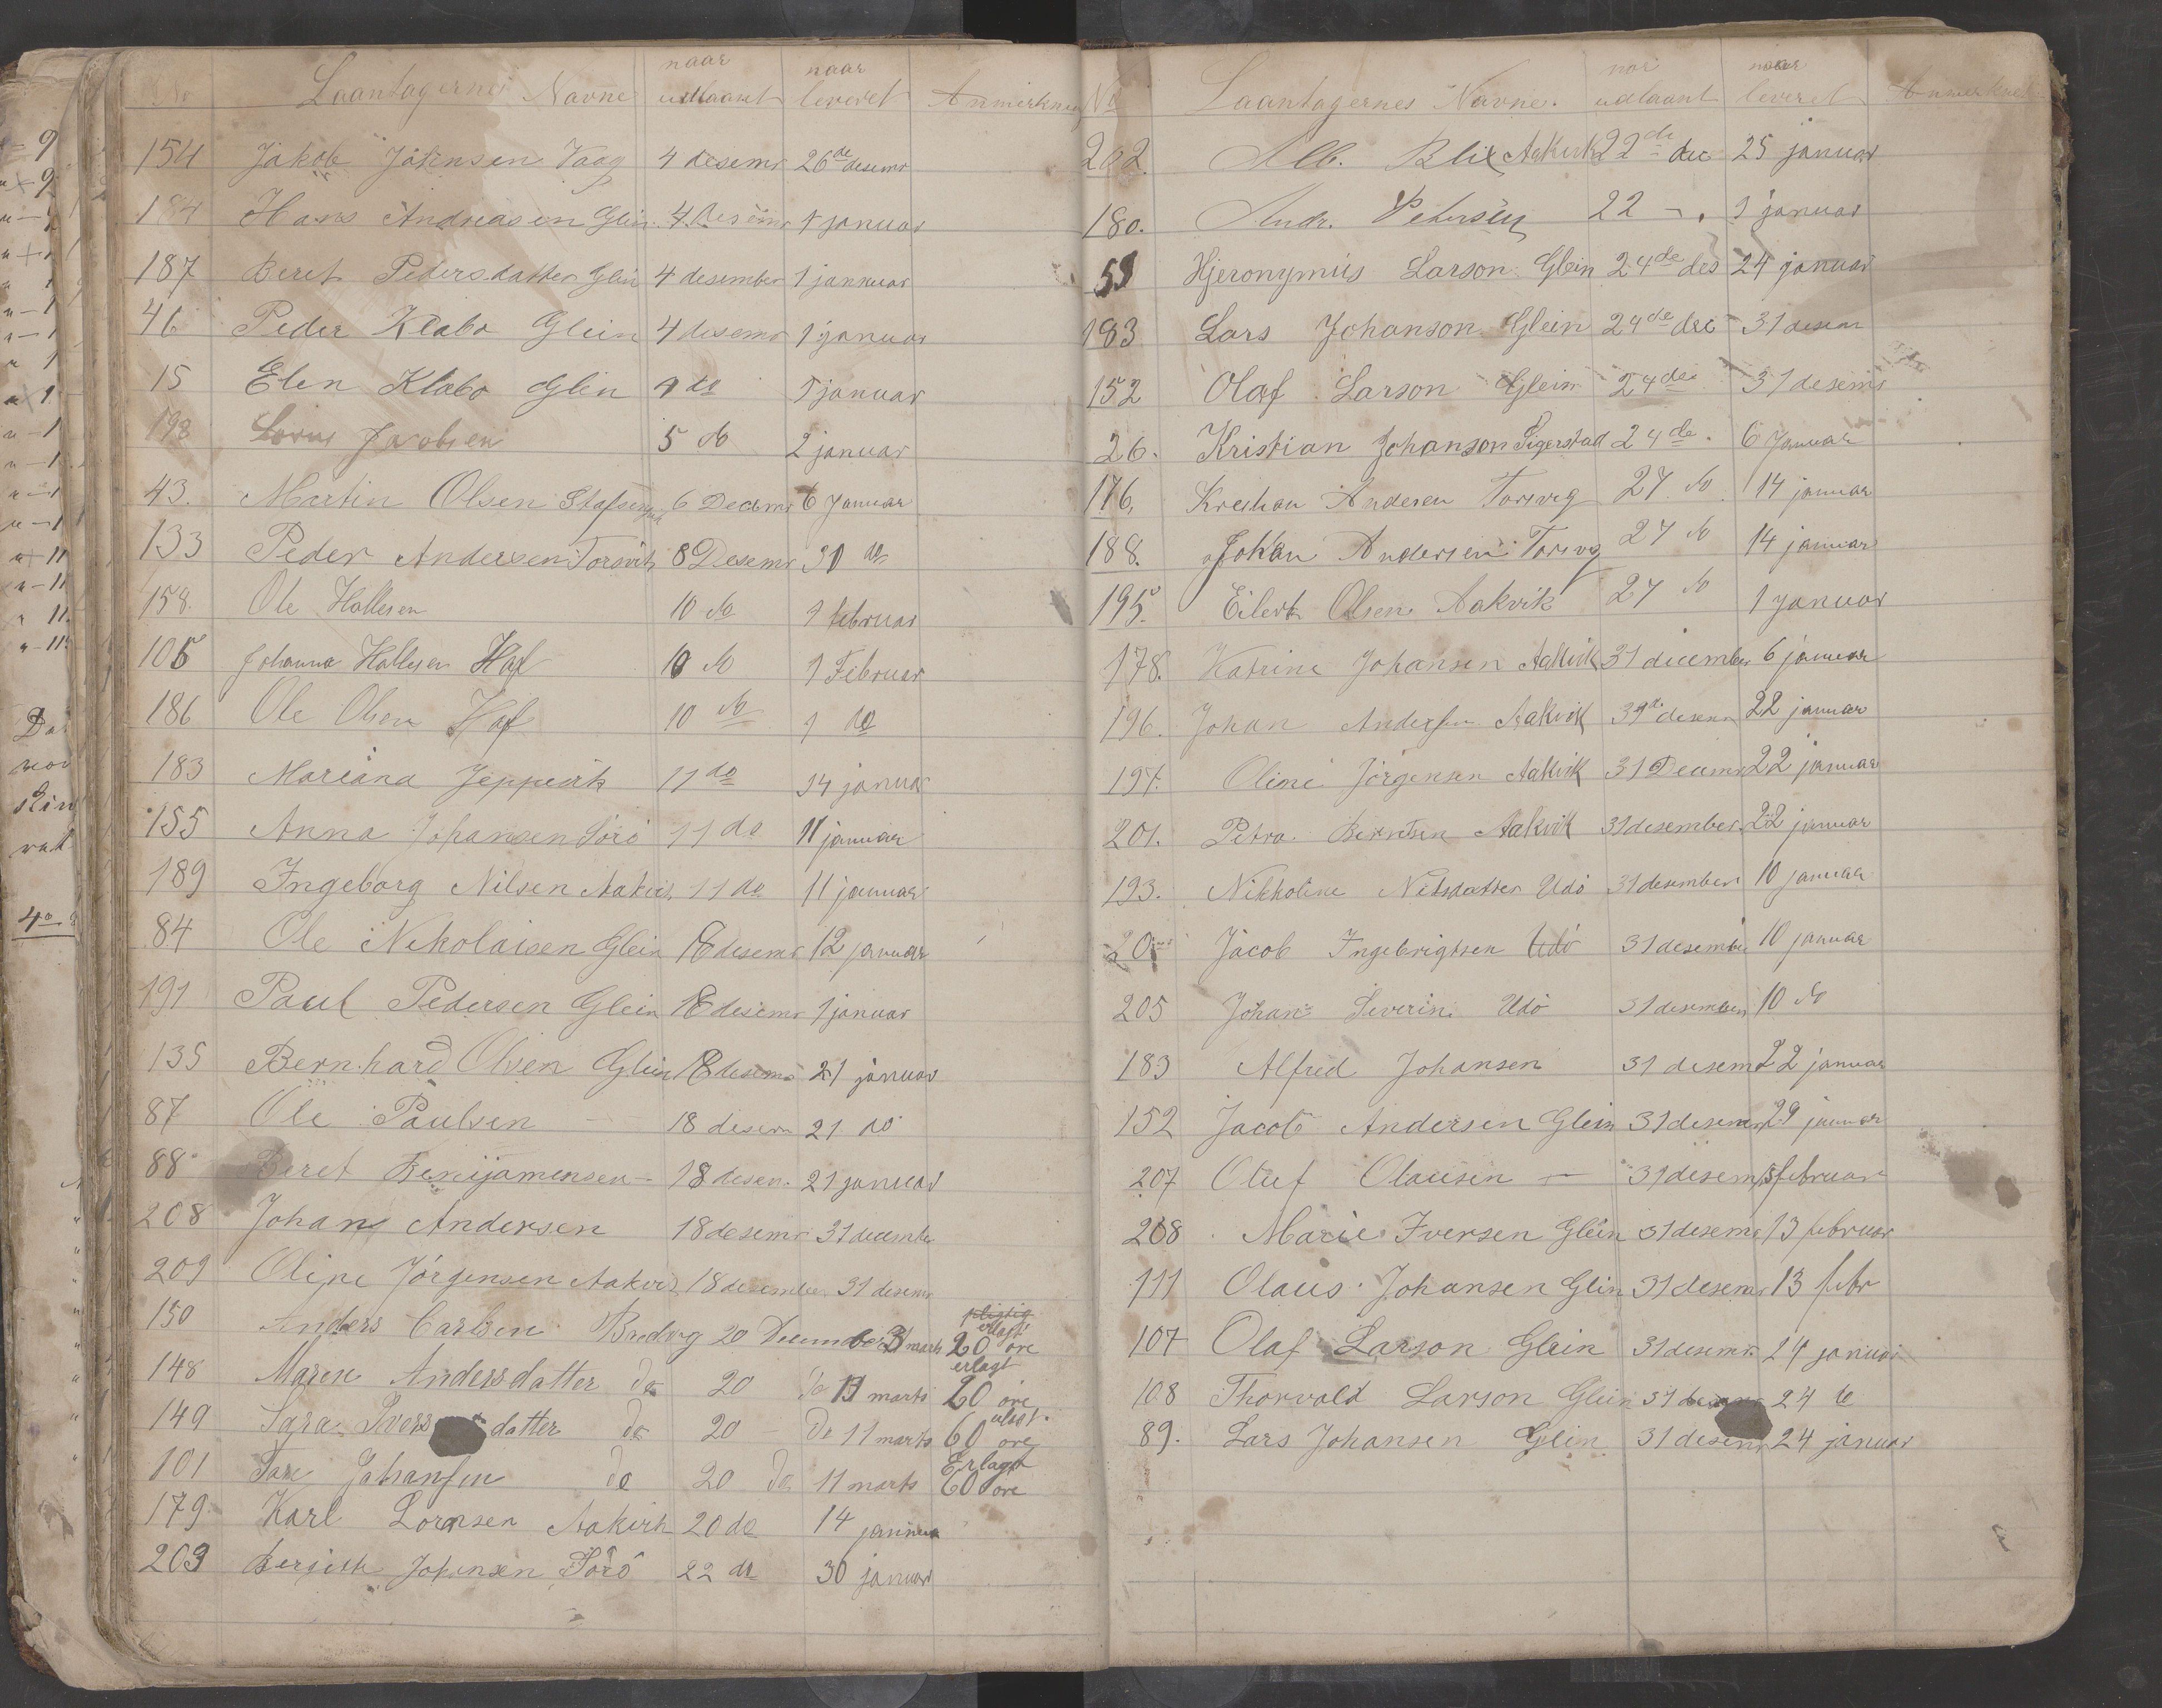 No Laantagernes Navne naar udlaant naar leveret Anmerkning
154 Jakob Jörensen Vaag 4 desemr 26de desemr
184 Hans Andreasen Glein 4 Desemr 1 januar
187 Beret Pedersdatter Glein 4 desember 1 januar
46 Peder Klæbo Glein 4 desemr 1 januar
15 Elen Klæbo Glein 4 do 1 januar
198 Jacobsen 5 do 2 januar
43. Martin Olsen 6 Decemr 6 Januar
133 Peder Andersen Torsvik 8 Desemr 31 do
158. Ole Hallesen 10 do 1 februar
105 Johanna Hallesen Haf 10 do 1 Februar
186 Ole Olsen Haf 10 do 1 do
183 Mariana Jeppesen 11 do 14 januar
155 Anna Johansen Sörö 11 do 11 januar
189 Ingeborg Nilsen Aakvik 11 do 11 januar
84 Ole Nikolaisen Glein 18 desemr 12 januar
191 Paul Pedersen Glein 18 desemr 1 januar
135 Bernhard Olsen Glein 18 desemr 21 januar
87 Ole Paulsen — 18 desem 21 do
88 Beret Benijamensen — 18 desem. 21 januar
208 Johan Andersen 18 desemr 31 december
209 Oline Jörgensen Aakvik 18 desember 31 desemr
150 Anders Carlsen Bredvig 20 December 11 marts erlagt 20 öre
148 Maren Andersdatter do 20 do 11 marts erlagt 20 öre
149 Sara Ivers datter do 20 — Do 11 marts erlagt 60 öre
101 Johansen do 20 do 11 marts Erlagt 60 öre
179. Karl Lornsen Aakvik 20 do 14 januar
203 Bergitte Johansen Sörö 22 do 30 januar
No Laantagernes Navne. naar udlaant naar leveret Anmerkning
202. Alb. Blix Aakvik 22de dec 25 januar
180. Andr. Petersen 22 — 1 januar
53 Hjeronymus Larson Glein 24de des 24 januar
193 Lars Johanson Glein 24de dec 31 desem
152 Olaf Larson Glein 24de 31 desemr
26. Kristian Johanson Sigerstad 24de. 6 Januar
176, Kristian Andersen Torsvig 27 do 14 januar
188. Johan Andersen Torsvig 27 do 14 januar
195. Eilert Olsen Aakvik 27 do 1 januar
178. Katrine Johansen Aakvik 31 december 6 januar
196. Johan Andersen Aakvik 31de desemr 22 januar
197. Oline Jörgensen Aakvik 31 Decemr 22 januar
201. Petra Berntsen Aakvik 31 desember 22 januar
193. Nikkoline Nilsdatter Udö 31 desember 10 januar
Jacob Ingebrigtsen Udö 31 desember 10 januar
205 Johan Severin Udö 31 desember 10 do
183 Alfred Johansen 31 desemr 22 januar
152 Jacob Andersen Glein 31 desemr 29 januar
207 Oluf Olausen — 31 desemr 13 februar
208 Marie Iversen Glein 31 desemr 13 februar
111 Olaus Johansen Glein 31 desemr 13 febr
107 Olaf Larson Glein 31 desemr. 24 januar
108 Thorvald Larson Glein 31 desemr 24 do
89. Lars Johansen Glein 31 desemr 24 januar